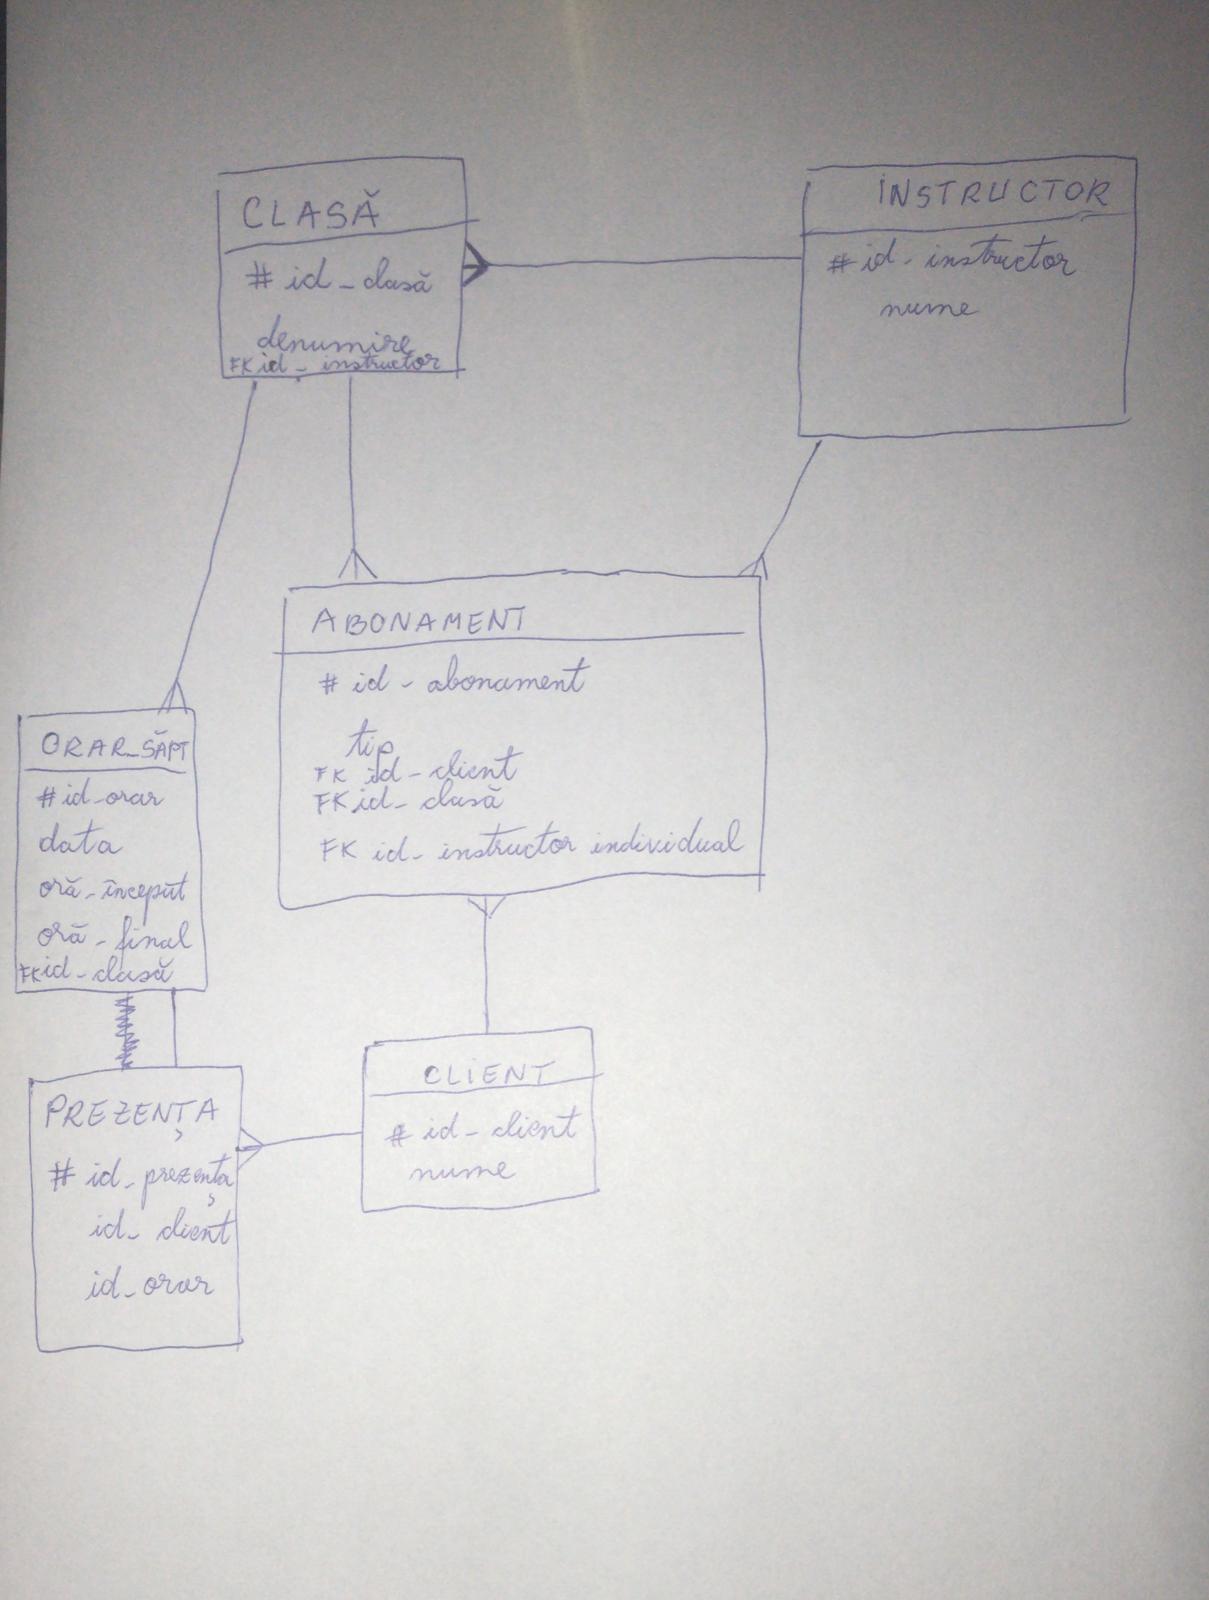 CLASĂ
# id_clasă
denumire
FK id_instructor
INSTRUCTOR
# id_instructor
nume
ABONAMENT
# id_abonament
tip
FK id_client
FK id_clasă
FK id_instructor individual
ORAR_SĂPT
# id_orar
data
oră_început
oră_final
FK id_clasă
CLIENT
# id_client
nume
PREZENȚA
# id_prezența
id_client
id_orar